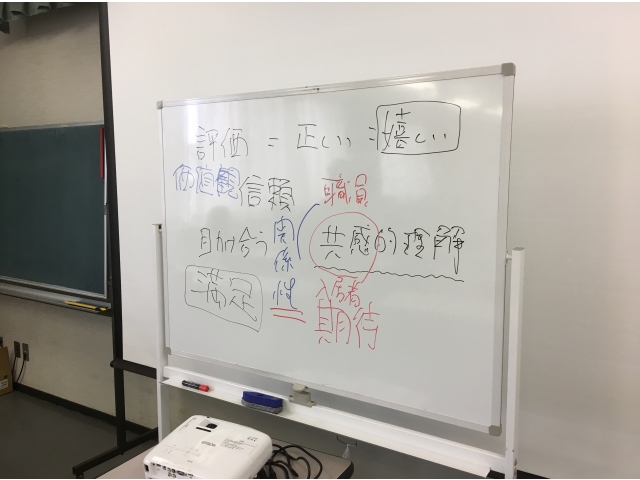 評価 = 正しい 嬉しい
価値観 信頼 職員
助け合う 関係性 共感的理解
満足 入居者
期待
EPSON